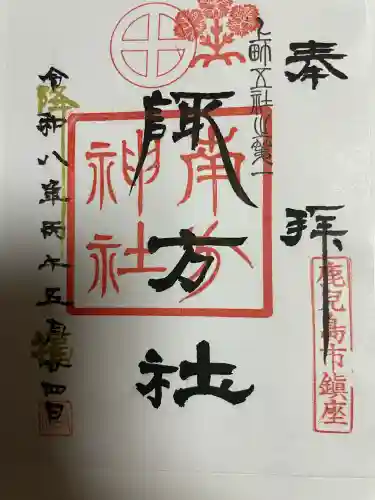 奉拝
鹿児島市鎮座
上町五社之第一
諏方社
南方
神社
降
令和八年丙午五月廿四日